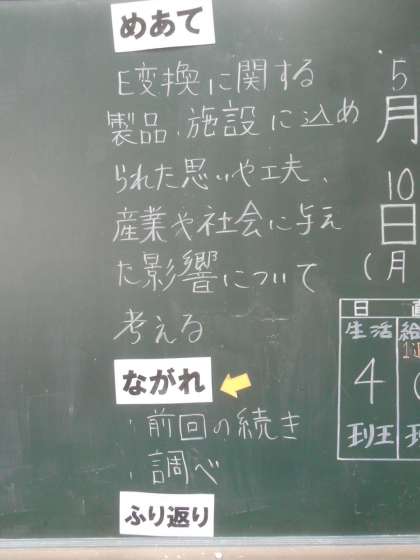 めあて
E変換に関する
製品、施設に込め
られた思いや工夫、
産業や社会に与え
た影響について
考える
ながれ
・前回の続き
・調べ
ふり返り
5
月
10
日
(月
日
生活
4
班
給